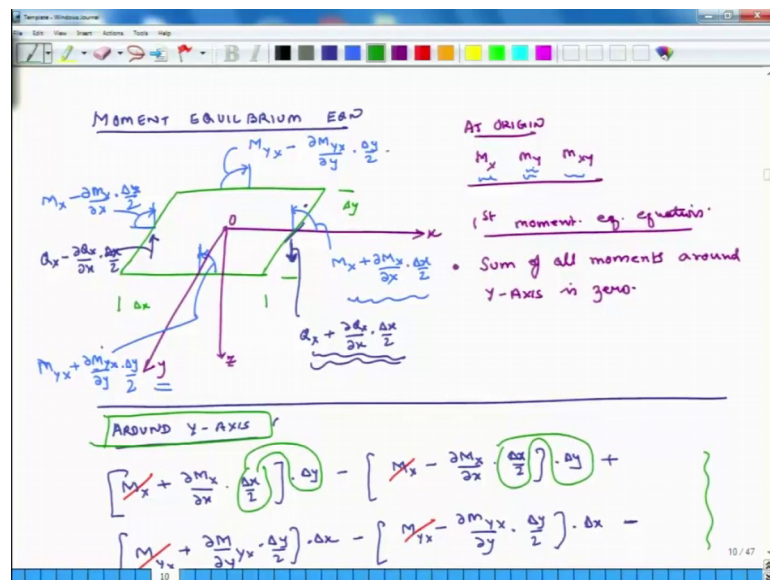 Template - Windows Journal
File Edit View Insert Actions Tools Help
MOMENT EQUILBRIUM EQN
M_yx − ∂M_yx/∂y · Δy/2
M_x − ∂M_x/∂x · Δx/2
Q_x − ∂Q_x/∂x · Δx/2
O
x
Δy
M_x + ∂M_x/∂x · Δx/2
Δx
Q_x + ∂Q_x/∂x · Δx/2
M_yx + ∂M_yx/∂y · Δy/2
y
z
AT ORIGIN
M_x M_y M_xy
1st moment. eq. equation.
• Sum of all moments around
Y-AXIS is zero.
AROUND Y-AXIS
[M_x + ∂M_x/∂x · Δx/2] · Δy − [M_x − ∂M_x/∂x · Δx/2] · Δy +
[M_yx + ∂M/∂y yx · Δy/2] · Δx − [M_yx − ∂M_yx/∂y · Δy/2] · Δx −
10 / 47
10